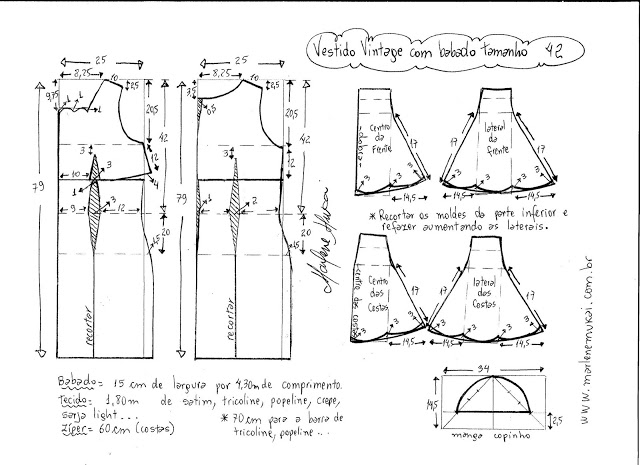 Vestido Vintage com babado tamanho 42
25
8,25
10
2,5
9,75
1
1
1
20,5
42
79
3
12
10
3
4
1
9
3
12
20
1,5
recortar
25
8,25
10
2,5
3,5
0,5
20,5
42
79
3
12
1
2
20
1,5
recortar
Marlene Mukai
centro da Frente
- dobra -
17
3
3
14,5
lateral da frente
17
17
3
3
14,5
* Recortar os moldes da parte inferior e
refazer aumentando as laterais.
Centro das Costas
centro das costas
17
3
3
14,5
lateral das Costas
17
3
3
14,5
www.marlenemukai.com.br
34
14,5
2,5
manga copinho
Babado = 15 cm de largura por 4,30m de comprimento.
Tecido = 1,80m de satim, tricoline, popeline, crepe,
sarja light...
* 70 cm para a barra de
tricoline, popeline...
Zíper = 60 cm (costas)